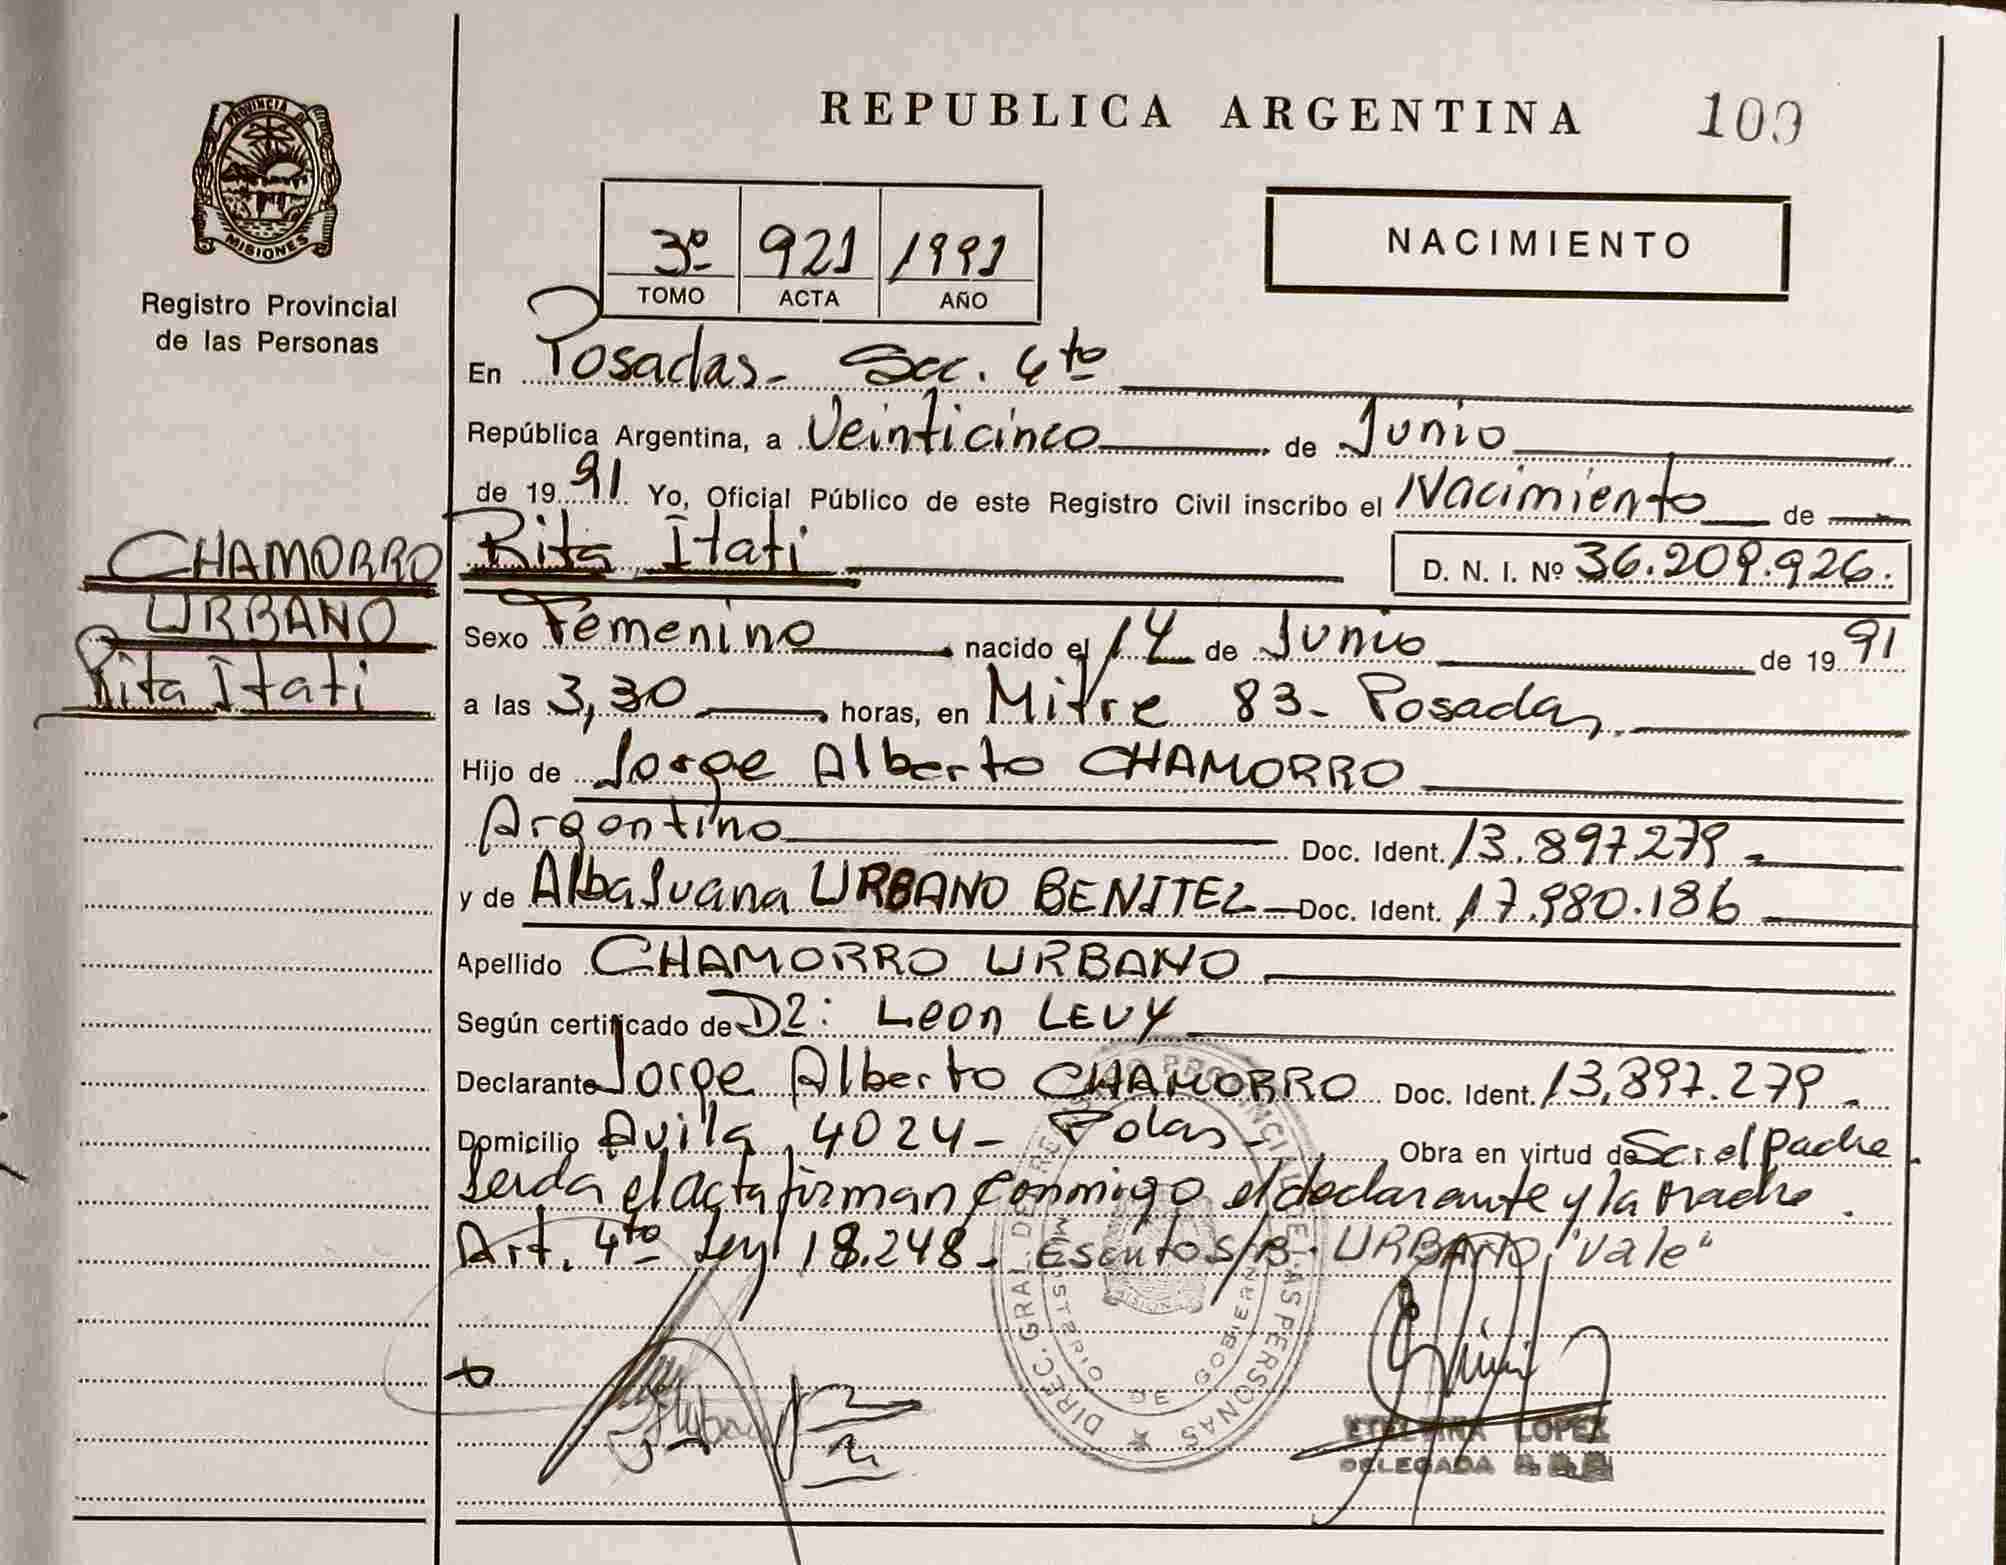 REPUBLICA ARGENTINA 100
PROVINCIA DE
MISIONES
Registro Provincial
de las Personas
3º 921 1991
TOMO ACTA AÑO
NACIMIENTO
En Posadas- Sec. 4to
República Argentina, a Veinticinco de Junio
de 1991 Yo, Oficial Público de este Registro Civil inscribo el Nacimiento de
CHAMORRO
URBANO
Rita Itati
Rita Itati D. N. I. Nº 36.209.926.
Sexo Femenino nacido el 14 de Junio de 1991
a las 3,30 horas, en Mitre 83- Posadas
Hijo de Jorge Alberto CHAMORRO
Argentino Doc. Ident. 13.897.279-
y de Alba Juana URBANO BENITEZ Doc. Ident. 17.980.186
Apellido CHAMORRO URBANO
Según certificado de D2: Leon LEVY
Declarante Jorge Alberto CHAMORRO Doc. Ident. 13,897.279-
Domicilio Avila 4024- Pdas- Obra en virtud de Ser el padre
Leida el acta firman conmigo el declarante y la madre.
Art. 4to Ley 18.248- Escrito S/R- URBANO "Vale"
DIREC. GRAL. DE REG. PROVINCIAL DE LAS PERSONAS
MINISTERIO DE GOBIERNO
ETELVINA LOPEZ
DELEGADA